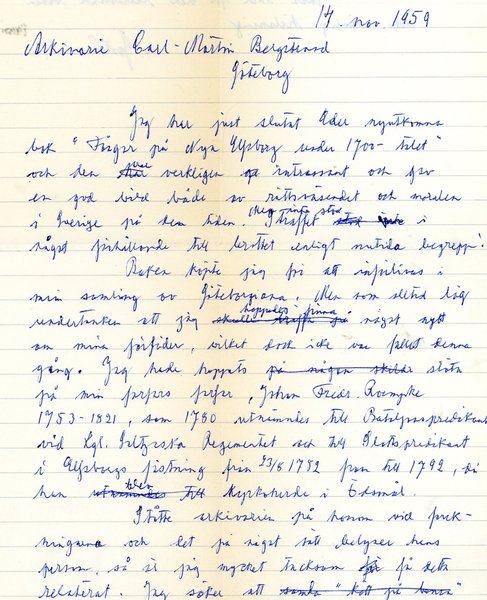 14 nov. 1959
Arkivarie Carl-Martin Bergstrand
Göteborg
Jag har just slutat Eder nyutkomna
bok "Fångar på Nya Elfsborg under 1700-talet"
och den var verkligen intressant och gav
en god bild både av rättsväsendet och seden
i Sverige på den tiden. Straffet stod inte i
något förhållande till brottet enligt nutida begrepp!
Boken köpte jag för att införlivas i
min samling av Göteborgiana. Men som alltid låg
undertanken att jag skulle träffa på hoppades finna något nytt
om mina förfäder, vilket dock icke var fallet denna
gång. Jag hade hoppats på någon stöta
på min farfars farfar, Johan Fredr. Roempke
1753-1821, som 1780 utnämndes till Bataljonspredikant
vid Kgl. Regementet och till Slottspredikant
i Elfsborgs fästning från 23/8 1782 fram till 1792, då
han utnämndes till blev kyrkoherde i Ödsmål.
Stötte arkivarien på honom vid forsk-
ningarna och det på något sätt belyser hans
person, så är jag mycket tacksam få detta
relaterat. Jag söker att samla "kött på benen"